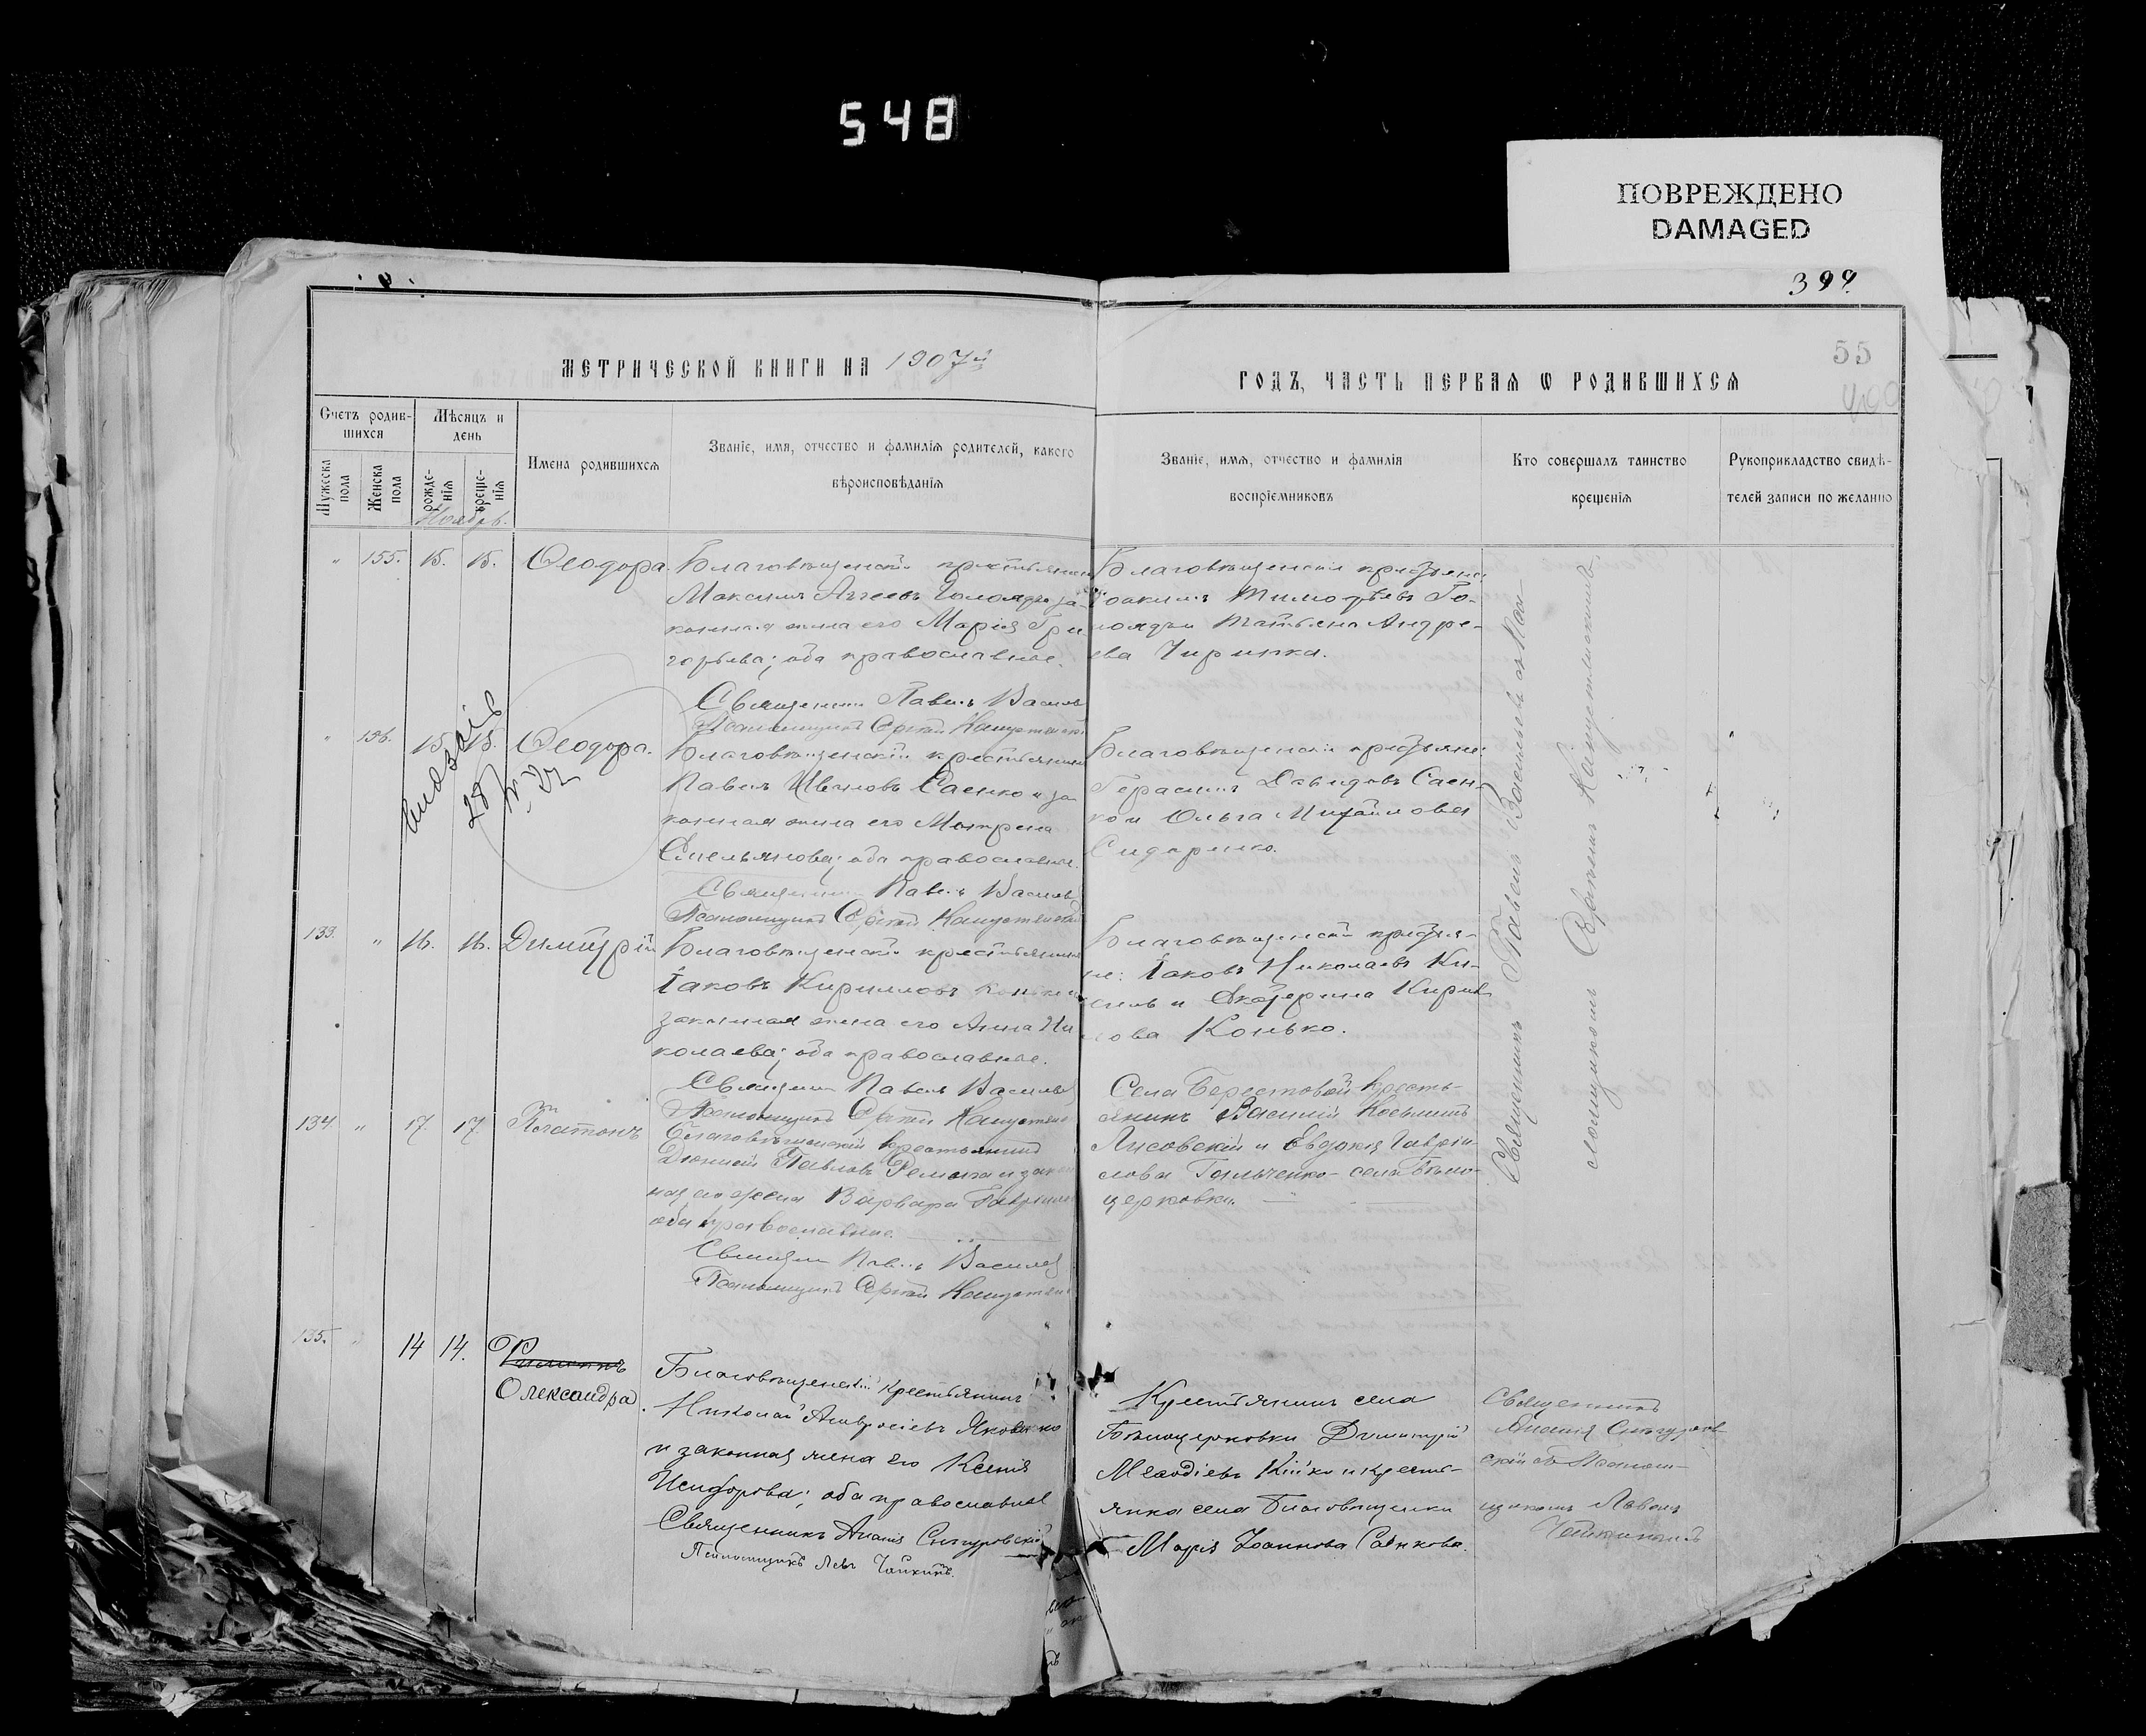 548
ПОВРЕЖДЕНО
DAMAGED
399.
55
400
МЕТРИЧЕСКОЙ КНИГИ НА 1907й
ГОДЪ, ЧАСТЬ ПЕРВАЯ Ѡ РОДИВШИХСЯ
Счетъ родив-
шихся
Мѣсяцъ и
день
Мужеска
пола
Женска
пола
рожде-
нія
креще-
нія
Имена родившихся
Званіе, имя, отчество и фамилія родителей, какого
вѣроисповѣданія
Званіе, имя, отчество и фамилія
воспріемниковъ
Кто совершалъ таинство
крещенія
Рукоприкладство свидѣ-
телей записи по желанію
Ноябрь.
" 155. 15. 15. Ѳеодора.
Благовѣщенскій крестьянинъ
Максимъ Аггеевъ за-
конная жена его Марія Гри
горьева; оба православные.
Священникъ Павелъ Васильевъ
Псаломщикъ Сергѣй
Благовѣщенскіе крестьяне:
Іоакимъ Тимофѣевъ Го-
Татьяна Андре-
ева Чирипка.
" 156. 15. 15. Ѳеодора.
28
Благовѣщенскій крестьянинъ
Павелъ Ивановъ Саенко и за
конная жена его Матрена
Емельянова; оба православные.
Священникъ Павелъ Васильевъ
Псаломщикъ Сергѣй
Благовѣщенскіе крестьяне:
Герасимъ Давидовъ Саен-
ко и Ольга Михайлова
Сидоренко.
133. " 16. 16. Димитрій
Благовѣщенскій крестьянинъ
Іаковъ Кирилловъ
законная жена его Анна Ни
колаева; оба православные.
Священникъ Павелъ Васильевъ
Псаломщикъ Сергѣй
Благовѣщенскіе крестья-
не: Іаковъ Николаевъ Ки-
и Екатерина Кирил
лова Конько.
134 " 17. 17. Платонъ
Благовѣщенскій крестьянинъ
Діонисій Павловъ и закон
ная его жена Варвара Гаврилова
оба православные.
Священникъ Павелъ Васильевъ
Псаломщикъ Сергѣй
Села Берестовой кресть-
янинъ Василій Косьминъ
Лисовскій и Евдокія Гаврі-
лова Гильченко - села Бѣло-
церковки.
Священникъ Павелъ Васильевъ съ Пса-
ломщикомъ Сергѣемъ
135. " 14 14.
Олександра.
Благовѣщенскій крестьянинъ
Николай Амвросіевъ Яковенко
и законная жена его Ксенія
Исидорова; оба православные
Священникъ Ананія Снѣгуровскій
Псаломщикъ Левъ Чайкинъ.
Крестьянинъ села
Бѣлоцерковки Димитрій
Меѳодіевъ Кійко и кресть-
янка села Благовѣщенки
Марія Іоаннова Саенкова.
Священникъ
Ананія Снѣгуров-
скій съ Псалом-
щикомъ Львомъ
Чайкинымъ